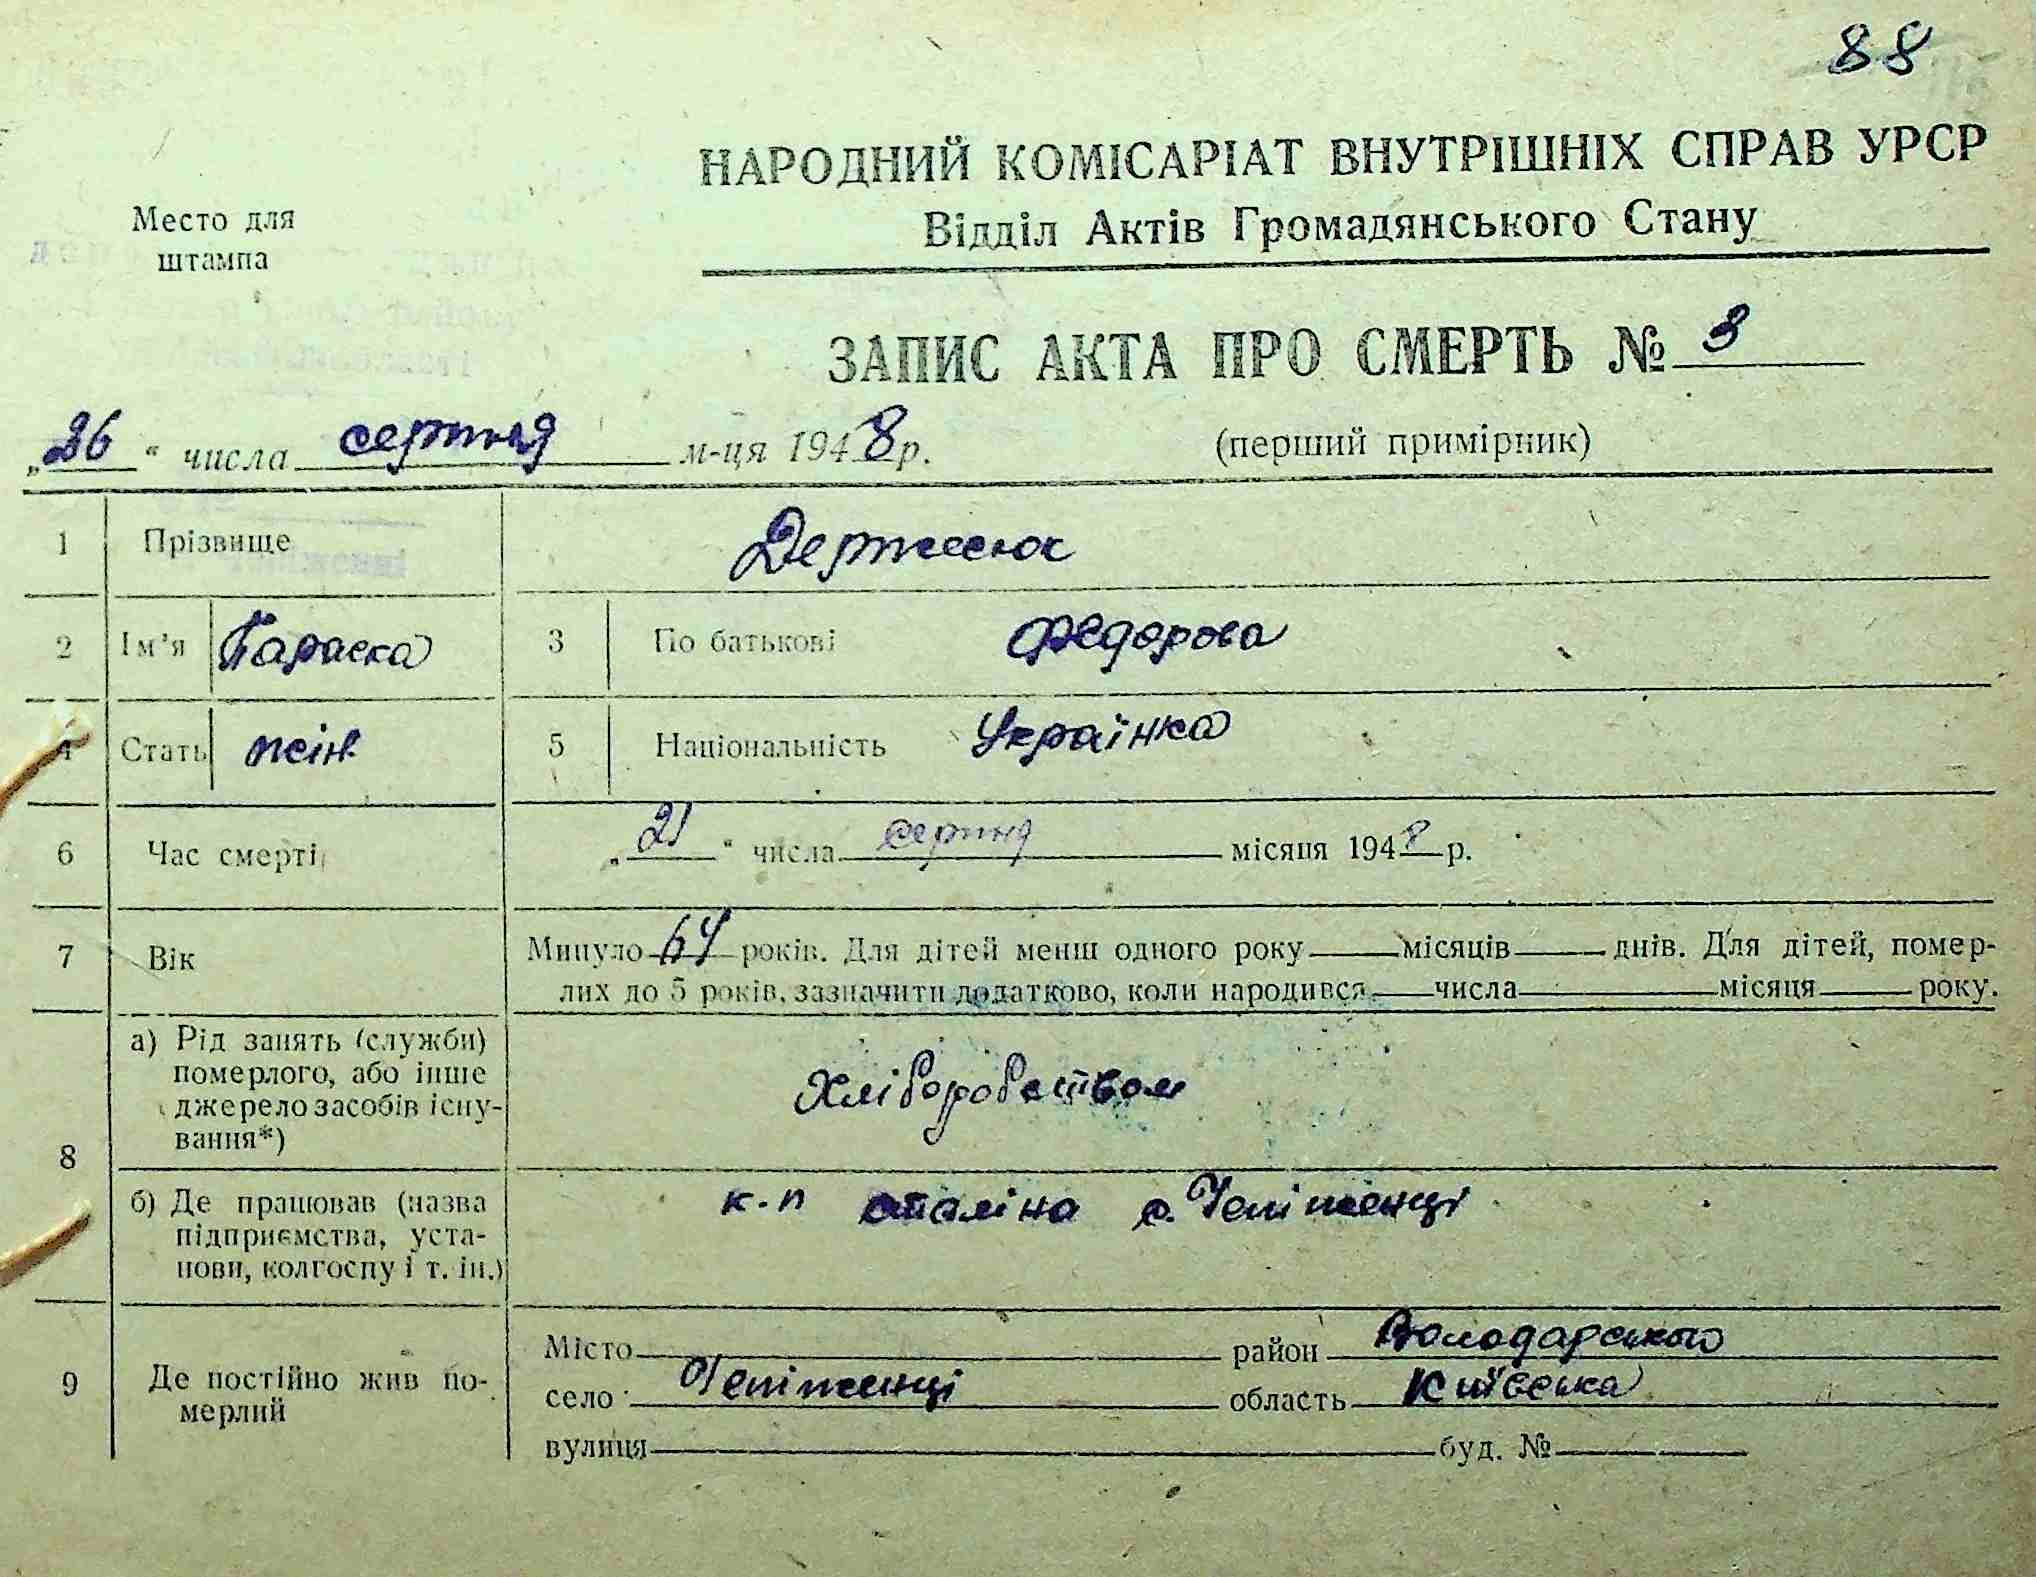 88
НАРОДНИЙ КОМІСАРІАТ ВНУТРІШНІХ СПРАВ УРСР
Відділ Актів Громадянського Стану
Место для
штампа
ЗАПИС АКТА ПРО СМЕРТЬ № 3
„26“ числа серпня м-ця 1948 р.
(перший примірник)
1 Прізвище
2 Ім'я Параска 3 По батькові Федорова
4 Стать жін. 5 Національність Українка
6 Час смерті „21“ числа серпня місяця 1948 р.
7 Вік Минуло 64 років. Для дітей менш одного року місяців днів. Для дітей, помер-
лих до 5 років, зазначити додатково, коли народився числа місяця року.
8 а) Рід занять (служби)
померлого, або інше
джерело засобів існу-
вання*)
Хліборобством
б) Де працював (назва
підприємства, уста-
нови, колгоспу і т. ін.)
к-п сталіна с. Чепіженці
9 Де постійно жив по-
мерлий
Місто район Володарського
село Чепіженці область Київська
вулиця буд. №